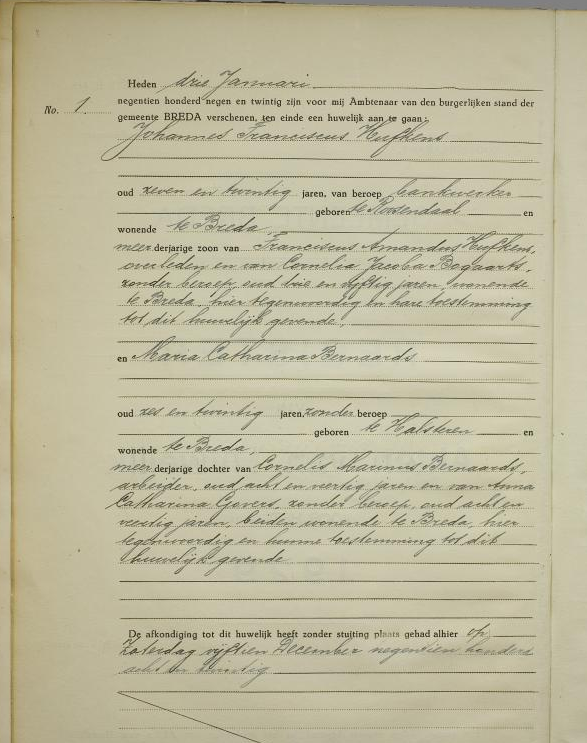 Heden drie Januari
No. 1.
negentien honderd negen en twintig zijn voor mij Ambtenaar van den burgerlijken stand der
gemeente BREDA verschenen, ten einde een huwelijk aan te gaan:
Johannes Franciscus Hufkens
oud zeven en twintig jaren, van beroep bankwerker
geboren te Rosendaal en
wonende te Breda,
meerderjarige zoon van Franciscus Amandus Hufkens,
overleden en van Cornelia Jacoba Bogaarts,
zonder beroep, oud drie en vijftig jaren, wonende
te Breda, hier tegenwoordig en hare toestemming
tot dit huwelijk gevende,
en Maria Catharina Bernaards
oud zes en twintig jaren, zonder beroep
geboren te Halsteren en
wonende te Breda,
meerderjarige dochter van Cornelis Marinus Bernaards,
arbeider, oud acht en veertig jaren en van Anna
Catharina Govers, zonder beroep, oud acht en
veertig jaren, beiden wonende te Breda, hier
tegenwoordig en hunne toestemming tot dit
huwelijk gevende
De afkondiging tot dit huwelijk heeft zonder stuiting plaats gehad alhier op
Zaterdag vijftien December negentien honderd
acht en twintig